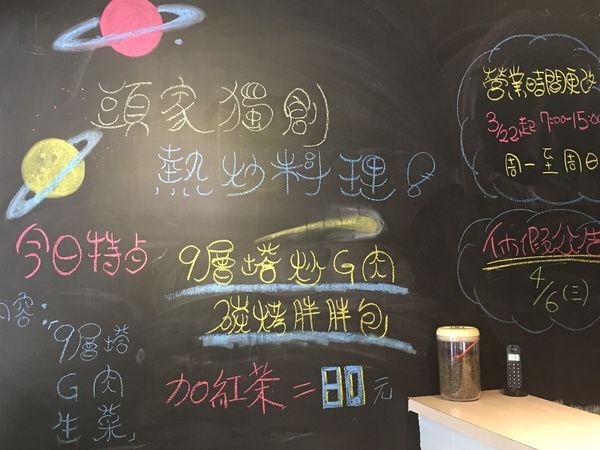 頭家獨創
熱炒料理!
今日特点
9層塔炒G肉
碳烤胖胖包
內容:
9層塔
G肉
生菜
加紅茶=80元
營業時間更改
3/22起 7:00-15:00
周一至周日
休假公告
4/6(三)